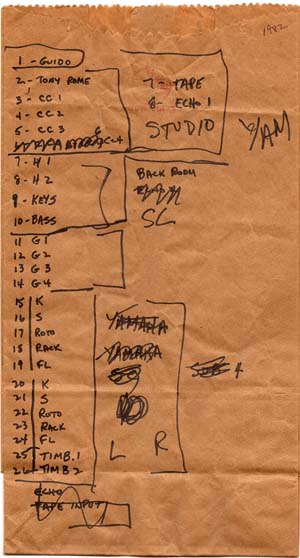 1982
1 - GUIDO
2 - TONY ROME
3 - CC 1
4 - CC 2
5 - CC 3
7 - TAPE
8 - ECHO 1
STUDIO
7 - H 1
8 - H 2
9 - KEYS
10 - BASS
BACK ROOM
SC
11 G1
12 G2
13 G3
14 G4
15 K
16 S
17 ROTO
18 RACK
19 FL
20 K
21 S
22 ROTO
23 RACK
24 FL
25 TIMB.1
26 TIMB 2
YAMAHA
YAMAHA
4
L R
ECHO
TAPE INPUT